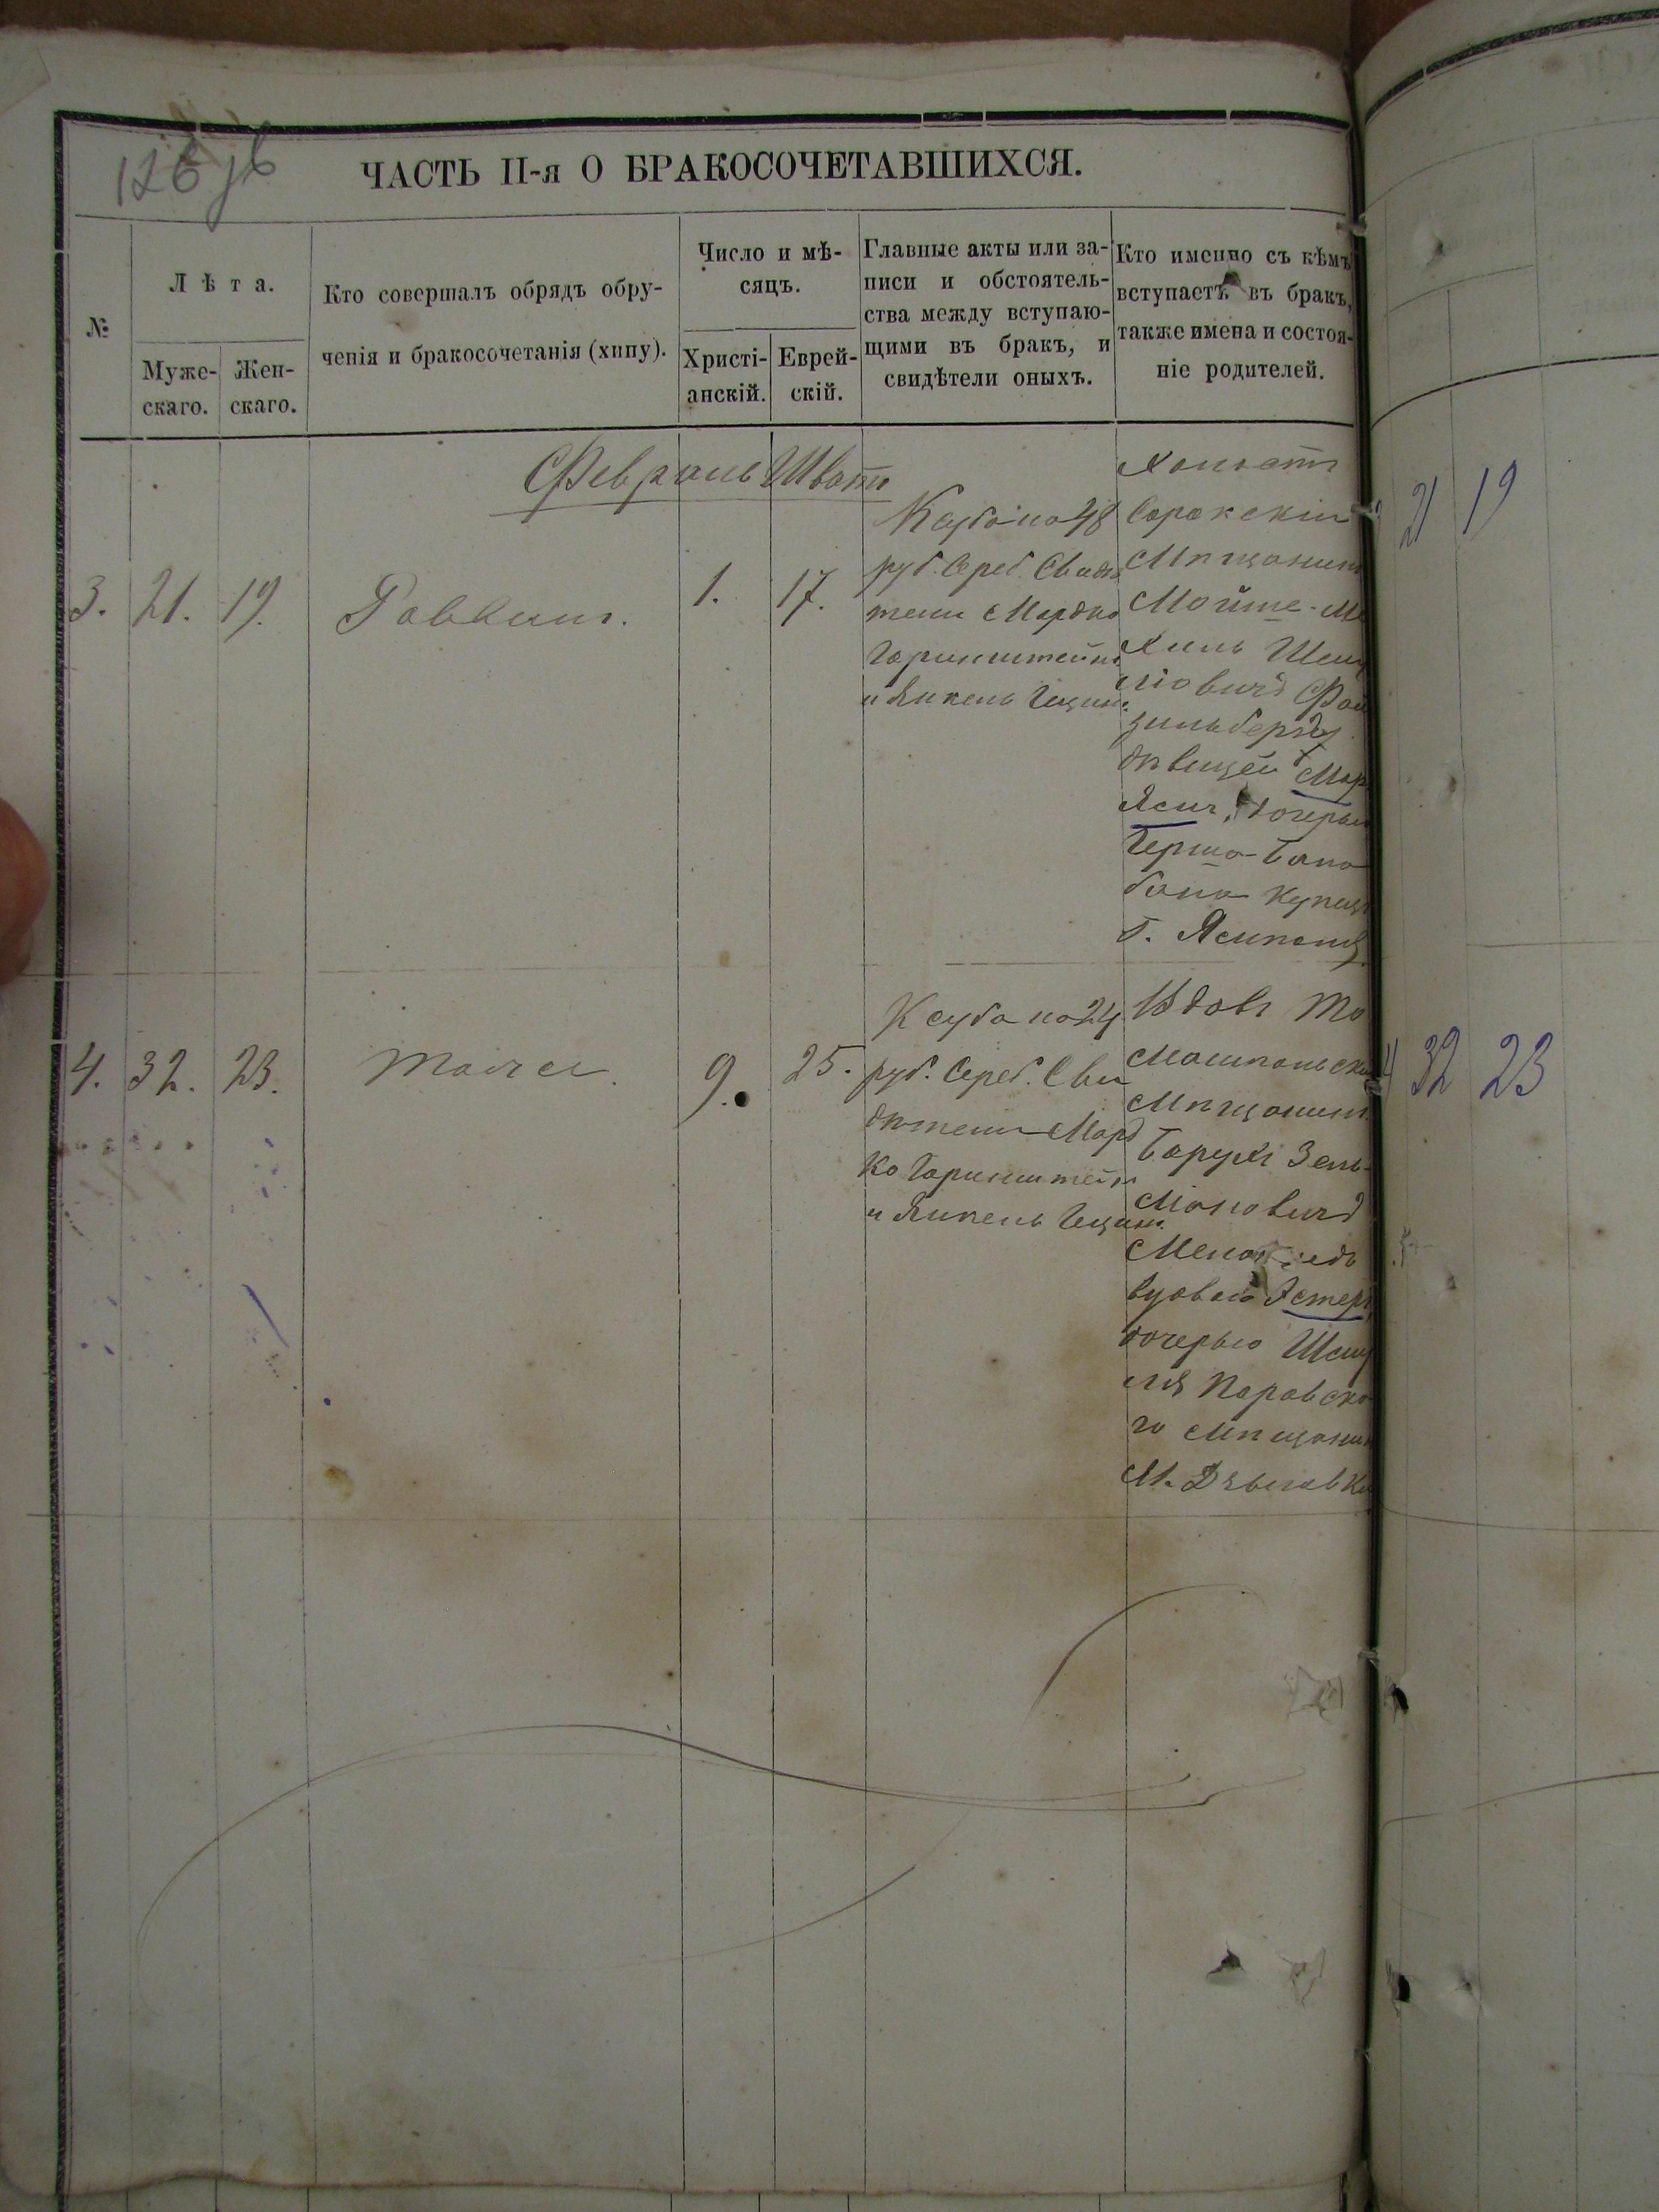 126 об
ЧАСТЬ II-я О БРАКОСОЧЕТАВШИХСЯ.
№
Лѣта.
Муже-
скаго.
Жен-
скаго.
Кто совершалъ обрядъ обру-
ченія и бракосочетанія (хипу).
Число и мѣ-
сяцъ.
Христі-
анскій.
Еврей-
скій.
Главные акты или за-
писи и обстоятель-
ства между вступаю-
щими въ бракъ, и
свидѣтели оныхъ.
Кто именно съ кѣмъ
вступаетъ въ бракъ,
также имена и состоя-
ніе родителей.
Февраль Шватъ
3. 21. 19. Раввинъ. 1. 17.
Ксуба на 48
руб. Сереб. Свидѣ
тели Мордко
и Янкель
Холостъ
Сорокскій
Мѣщанинъ
Мойше-Ме
хиль Шму
ліовичъ
зильбергъ
дѣвицей
дочерью
Герша-Бала
бана купца
г.
4. 32. 23. Тоже. 9. 25.
Ксуба на 24
руб. Сереб. Сви
дѣтели Морд
ко
и Янкель
Вдовъ То
машпольскій
Мѣщанинъ
Барухъ Зель-
мановичъ
вдовою Эстеръ
дочерью Шму
ля
го мѣщанина
м. Дзыговка
21 19
4 32 23